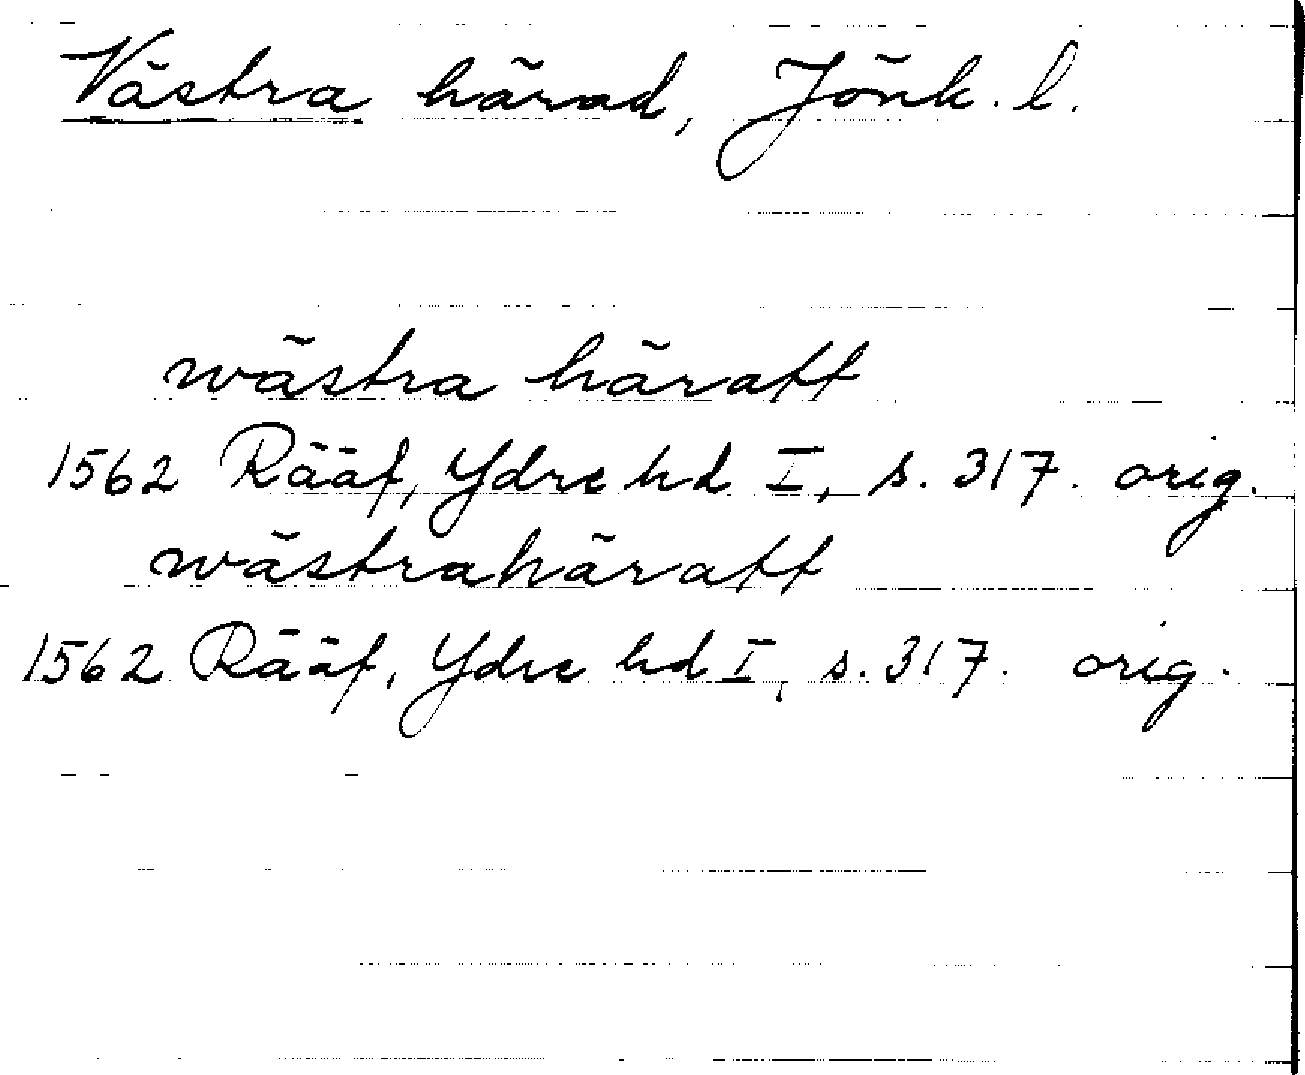 Västra härad, Jönk. l.
wästra häratt
1562 Rääf, Ydre hd I, s. 317. orig.
wästrahäratt
1562 Rääf, Ydre hd I, s. 317. orig.